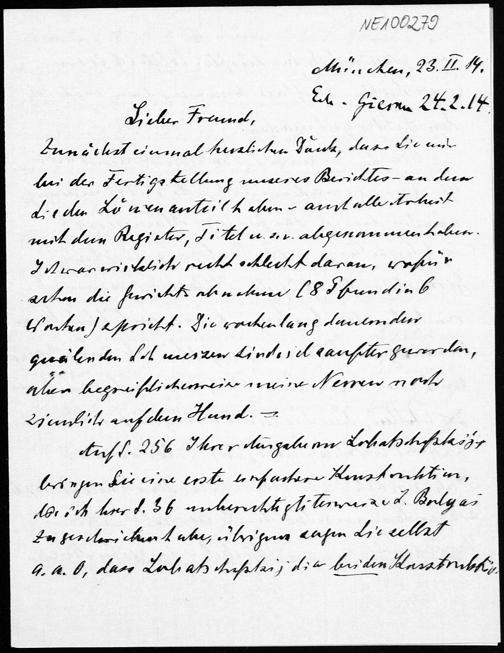 NE100279
München, 23. II. 14.
24.2.14.
Lieber Freund,
Zunächst einmal herzlichen Dank, dass Sie mir
bei der Fertigstellung unseres Berichtes – an dem
Sie den Löwenanteil haben – auch alle Arbeit
mit dem Register, Titel u.s.w. abgenommen haben.
Ich war wirklich recht schlecht daran, wofür
schon die Gewichtsabnahme (8 Pfund in 6
Wochen) spricht. Die wochenlang dauernden
quälenden Schmerzen sind jetzt sanfter geworden,
aber begreiflicherweise meine Nerven noch
ziemlich auf dem Hund. —
Auf S. 256 Ihrer Ausgabe von Lobatschefskij
bringen Sie eine erste einfachere Konstruktion,
die ich hier S. 36 unberechtigterweise L. Bolyai
zugeschrieben habe, übrigens sagen Sie selbst
a. a. O, dass Lobatschefskij die beiden Konstruktio